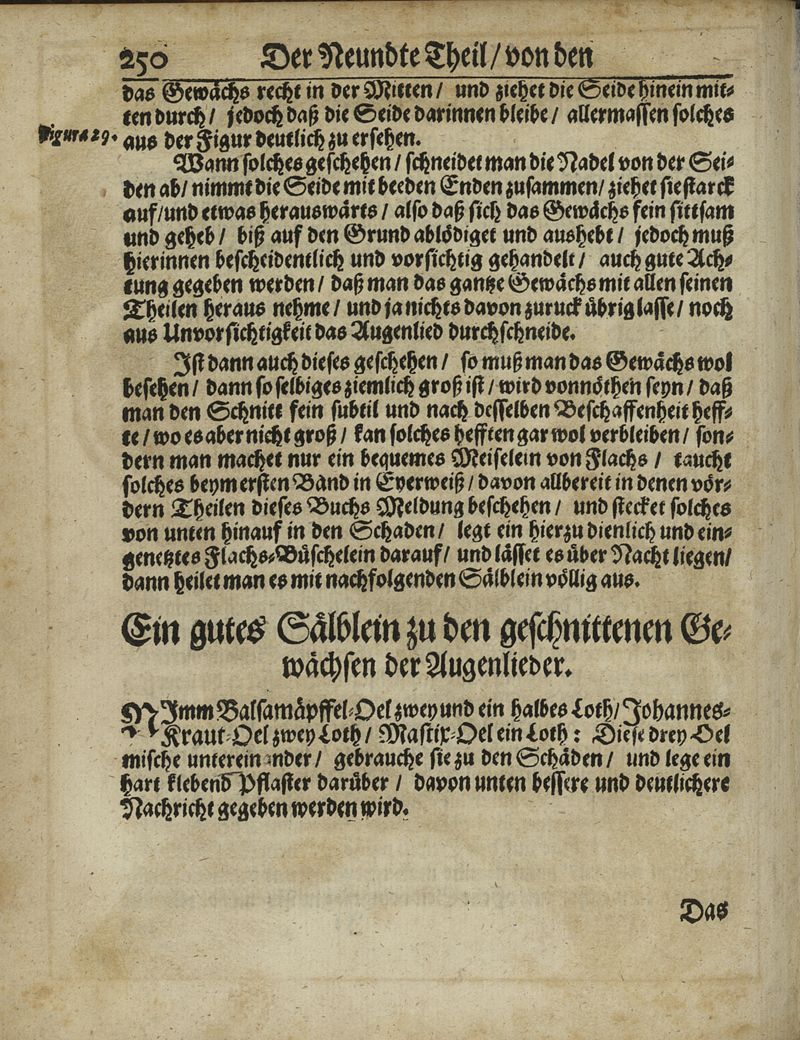 250 Der Neundte Theil / von den
das Gewächs recht in der Mitten / und ziehet die Seide hinein mit-
ten durch / jedoch daß die Seide darinnen bleibe / allermassen solches
Figura 29. aus der Figur deutlich zu ersehen.
Wann solches geschehen / schneidet man die Nadel von der Sei-
den ab / nimmt die Seide mit beeden Enden zusammen / ziehet sie starck
auf / und etwas herauswärts / also daß sich das Gewächs fein sittsam
und geheb / biß auf den Grund ablödiget und aushebt / jedoch muß
hierinnen bescheidentlich und vorsichtig gehandelt / auch gute Ach-
tung gegeben werden / daß man das gantze Gewächs mit allen seinen
Theilen heraus nehme / und ja nichts davon zuruck übrig lasse / noch
aus Unvorsichtigkeit das Augenlied durchschneide.
Ist dann auch dieses geschehen / so muß man das Gewächs wol
besehen / dann so selbiges ziemlich groß ist / wird vonnöthen seyn / daß
man den Schnitt fein subtil und nach desselben Beschaffenheit heff-
te / wo es aber nicht groß / kan solches hefften gar wol verbleiben / son-
dern man machet nur ein bequemes Meiselein von Flachs / taucht
solches beym ersten Band in Eyerweiß / davon allbereit in denen vör-
dern Theilen dieses Buchs Meldung beschehen / und stecket solches
von unten hinauf in den Schaden / legt ein hierzu dienlich und ein-
genetztes Flachs-Büschelein darauf / und lässet es über Nacht liegen /
dann heilet man es mit nachfolgenden Sälblein völlig aus.
Ein gutes Sälblein zu den geschnittenen Ge-
wächsen der Augenlieder.
NImm Balsamäpffel-Oel zwey und ein halbes Loth / Johannes-
Kraut-Oel zwey Loth / Mastix-Oel ein Loth : Diese drey Oel
mische untereinander / gebrauche sie zu den Schäden / und lege ein
hart klebend Pflaster darüber / davon unten bessere und deutlichere
Nachricht gegeben werden wird.
Das